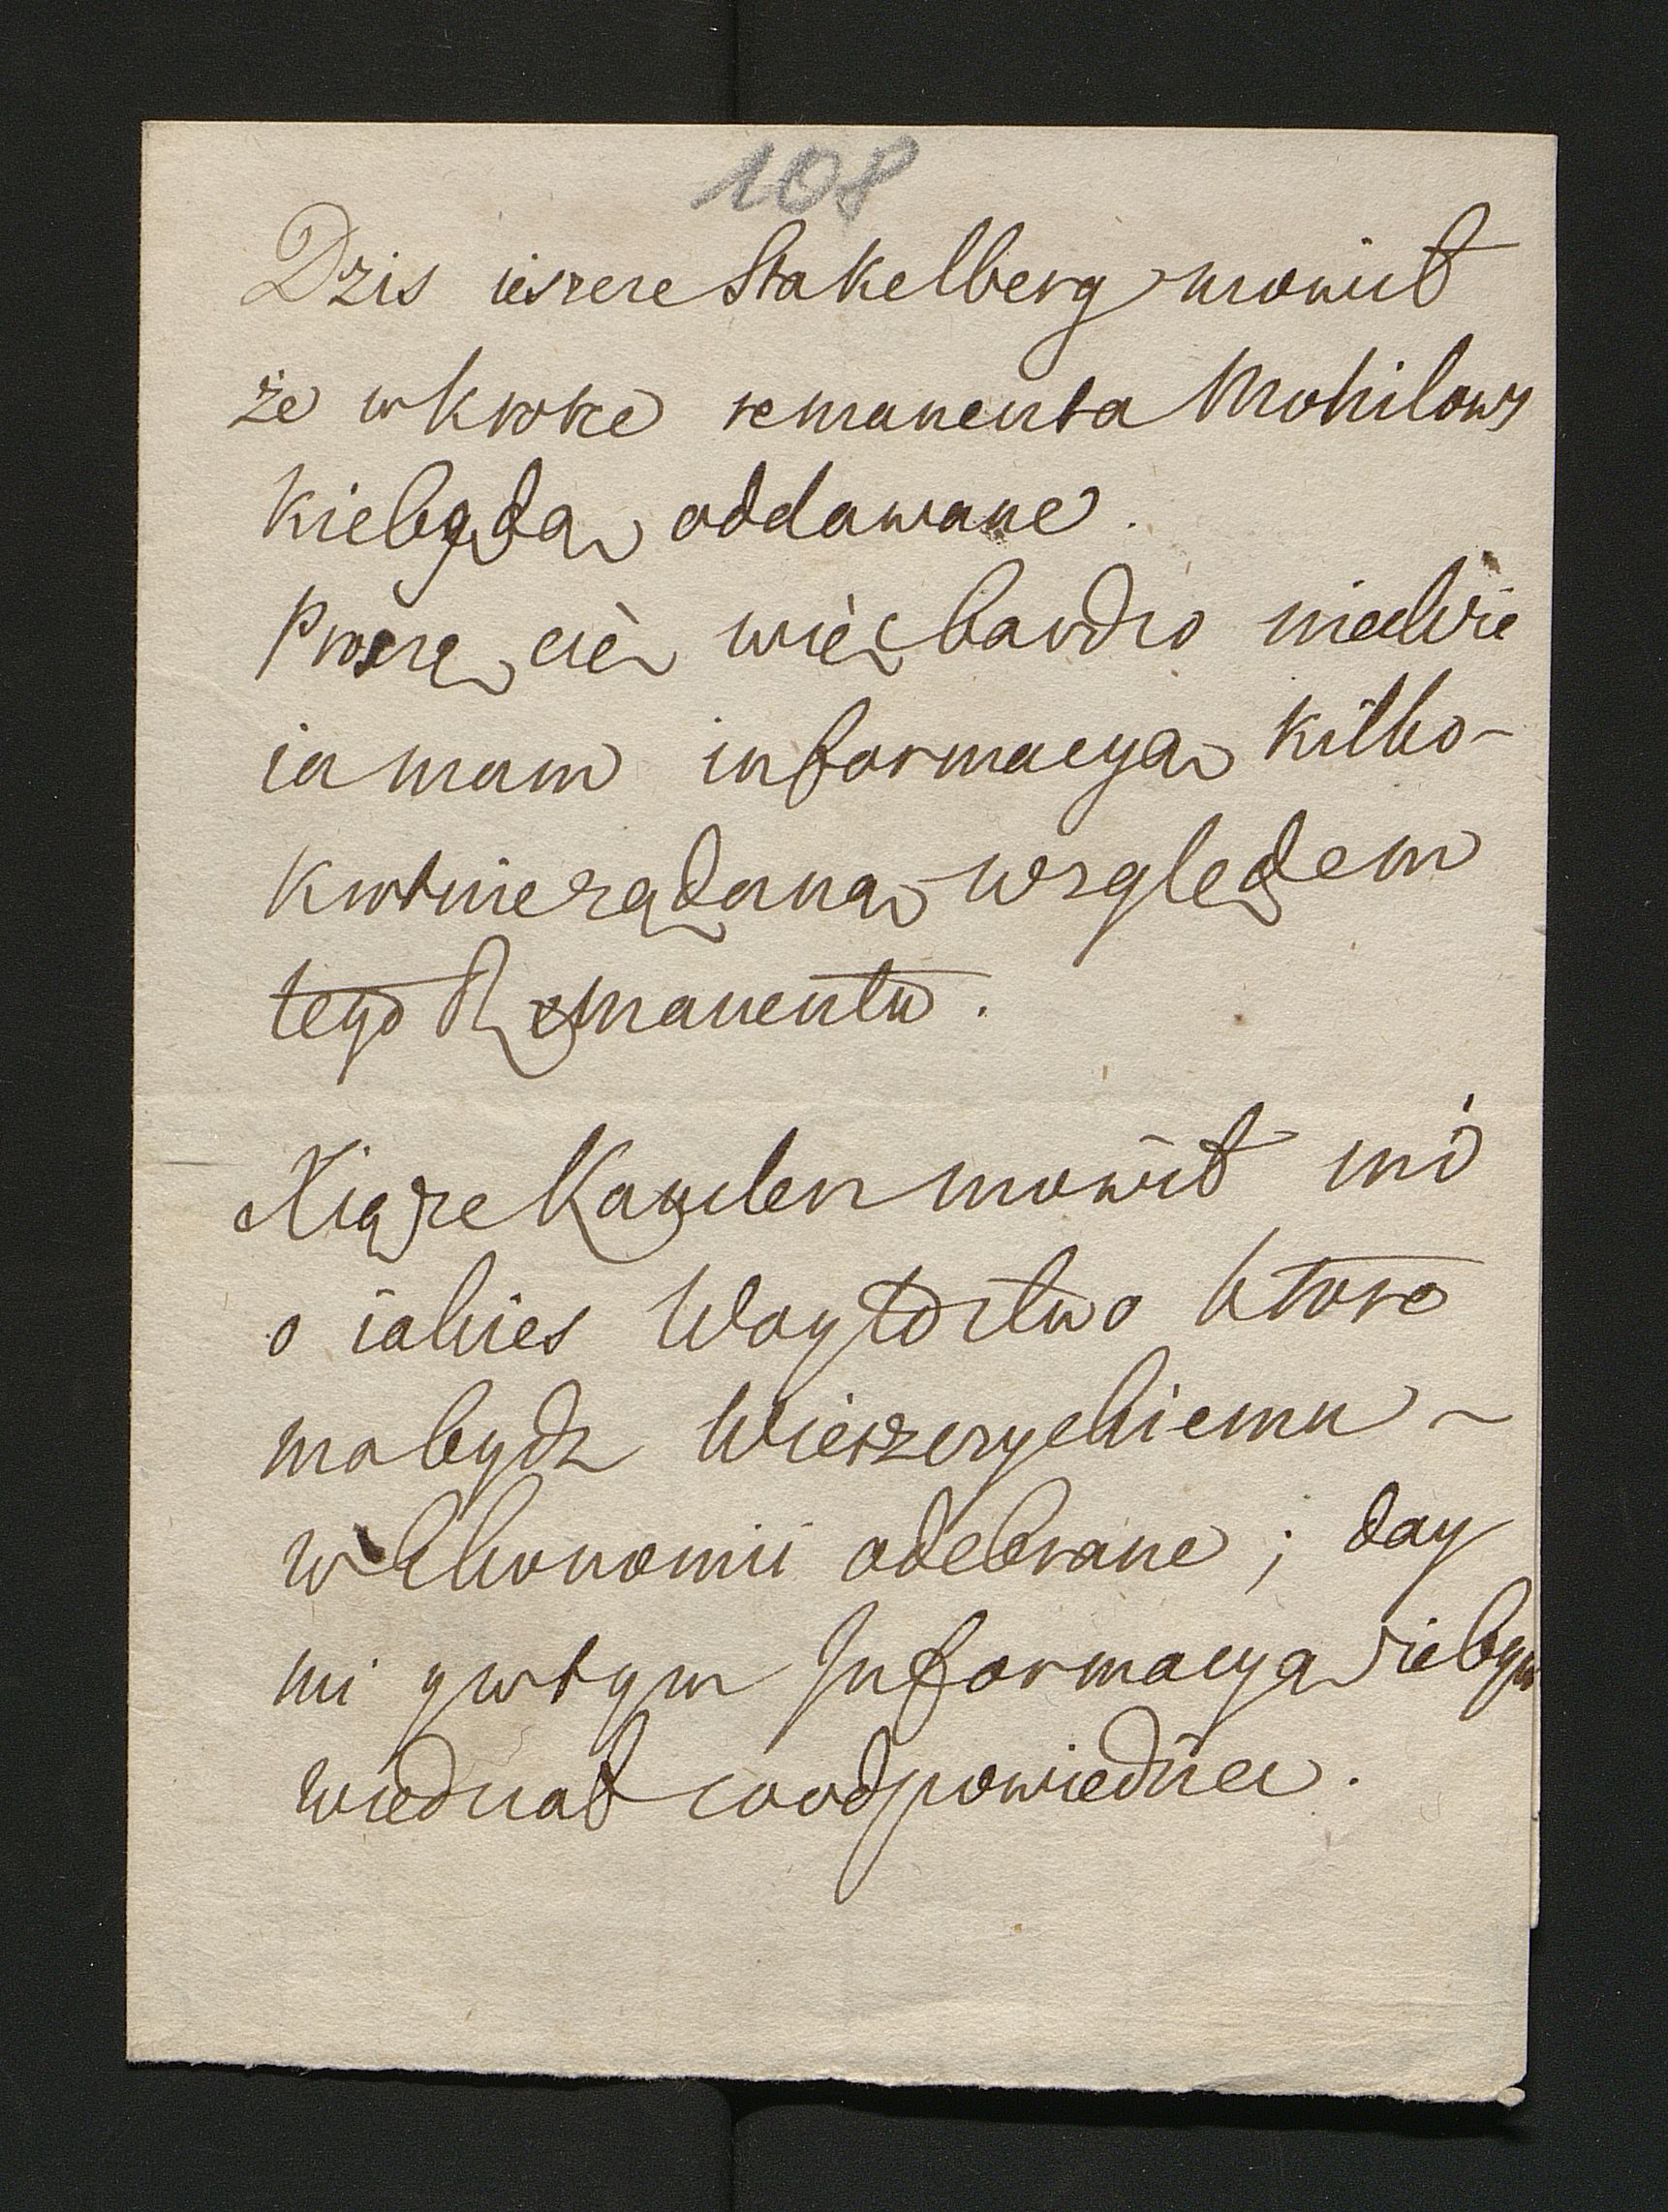 108
Dzis ieszcze Stakelberg mowił
że wkrotce remanenta Mohilows
kie będą oddawane.
Proszę cię więc bardzo niechże
ia mam informacyą kilko-
krotnie żądaną względem
tego Remanentu.
Xiąże Kanclerz mowił mi
o iakies Woytostwo ktore
ma bydz Wieszczyckiemu
w Ekonomii odebrane; day
mi y wtym Informacyą żebym
wiedział co odpowiedziec.